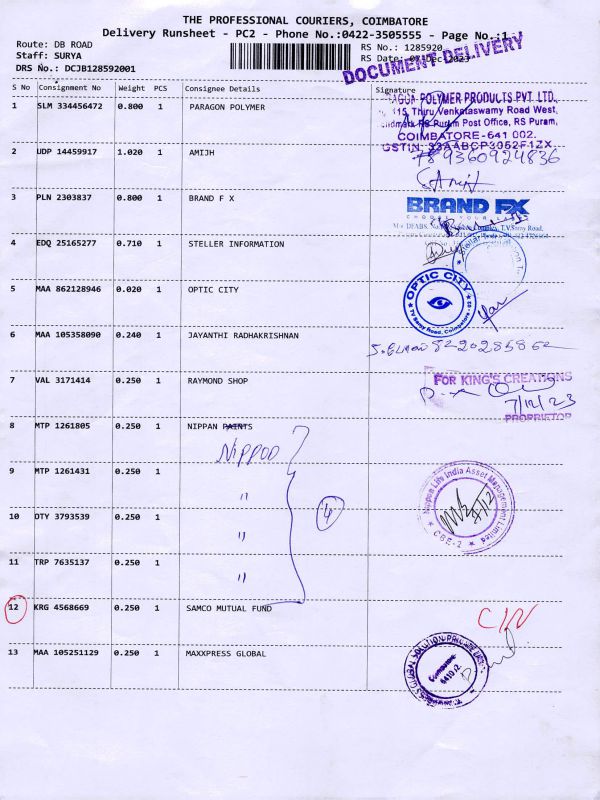 THE PROFESSIONAL COURIERS, COIMBATORE
Delivery Runsheet - PC2 - Phone No.:0422-3505555 - Page No.:1
Route: DB ROAD
Staff: SURYA
DRS No.: DCJB128592001
RS No.: 1285920
RS Date: 07-Dec-2023
DOCUMENT DELIVERY
S No Consignment No Weight PCS Consignee Details Signature
1 SLM 334456472 0.800 1 PARAGON POLYMER
POLYMER PRODUCTS PVT. LTD.,
115, Thiru Venkataswamy Road West,
RS Puram Post Office, RS Puram,
COIMBATORE-641 002.
GSTIN: 33AABCP3052F1ZX
2 UDP 14459917 1.020 1 AMIJH
9360924836
3 PLN 2303837 0.800 1 BRAND F X
BRAND FX
4 EDQ 25165277 0.710 1 STELLER INFORMATION
5 MAA 862128946 0.020 1 OPTIC CITY
OPTIC CITY
6 MAA 105358090 0.240 1 JAYANTHI RADHAKRISHNAN
7 VAL 3171414 0.250 1 RAYMOND SHOP
FOR KING'S CREATIONS
7/12/23
PROPRIETOR
8 MTP 1261805 0.250 1 NIPPAN PAINTS
NIPPOD
9 MTP 1261431 0.250 1
"
Nippon Life India Asset Management Limited
CBE-2
10 DTY 3793539 0.250 1
"
4
11 TRP 7635137 0.250 1
"
12 KRG 4568669 0.250 1 SAMCO MUTUAL FUND
13 MAA 105251129 0.250 1 MAXXPRESS GLOBAL